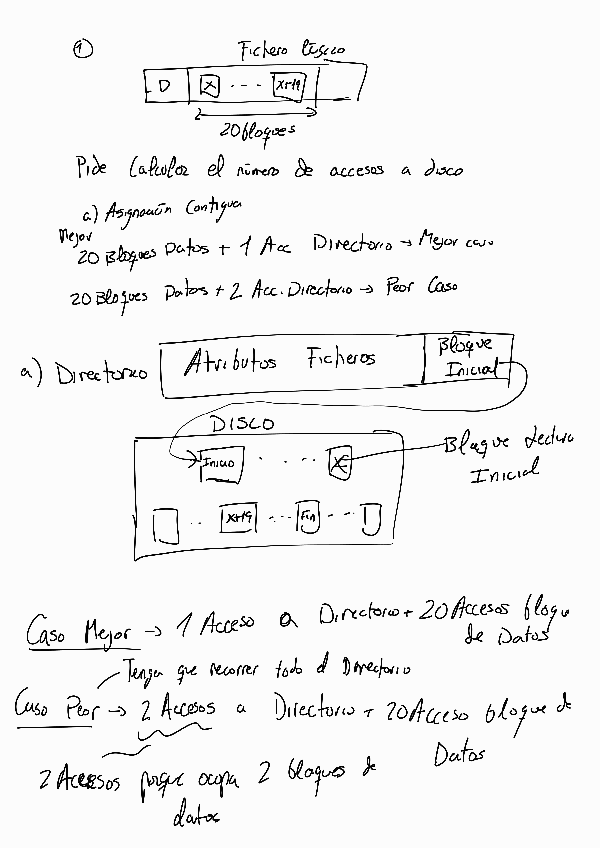 ①
Fichero lógico
D X ... X+19
20 bloques
Pide Calcular el número de accesos a disco
a) Asignación Contigua
Mejor
20 Bloques Datos + 1 Acc Directorio → Mejor caso
20 Bloques Datos + 2 Acc. Directorio → Peor Caso
a) Directorio Atributos Ficheros Bloque
Inicial
DISCO
Inicio .... X
Bloque Lectura
Inicial
.. X+19 ... Fin ...
Caso Mejor → 1 Acceso a Directorio + 20 Accesos bloque
de Datos
Tenga que recorrer todo el Directorio
Caso Peor → 2 Accesos a Directorio + 20 Acceso bloque de
Datos
2 Accesos porque ocupa 2 bloques de
datos